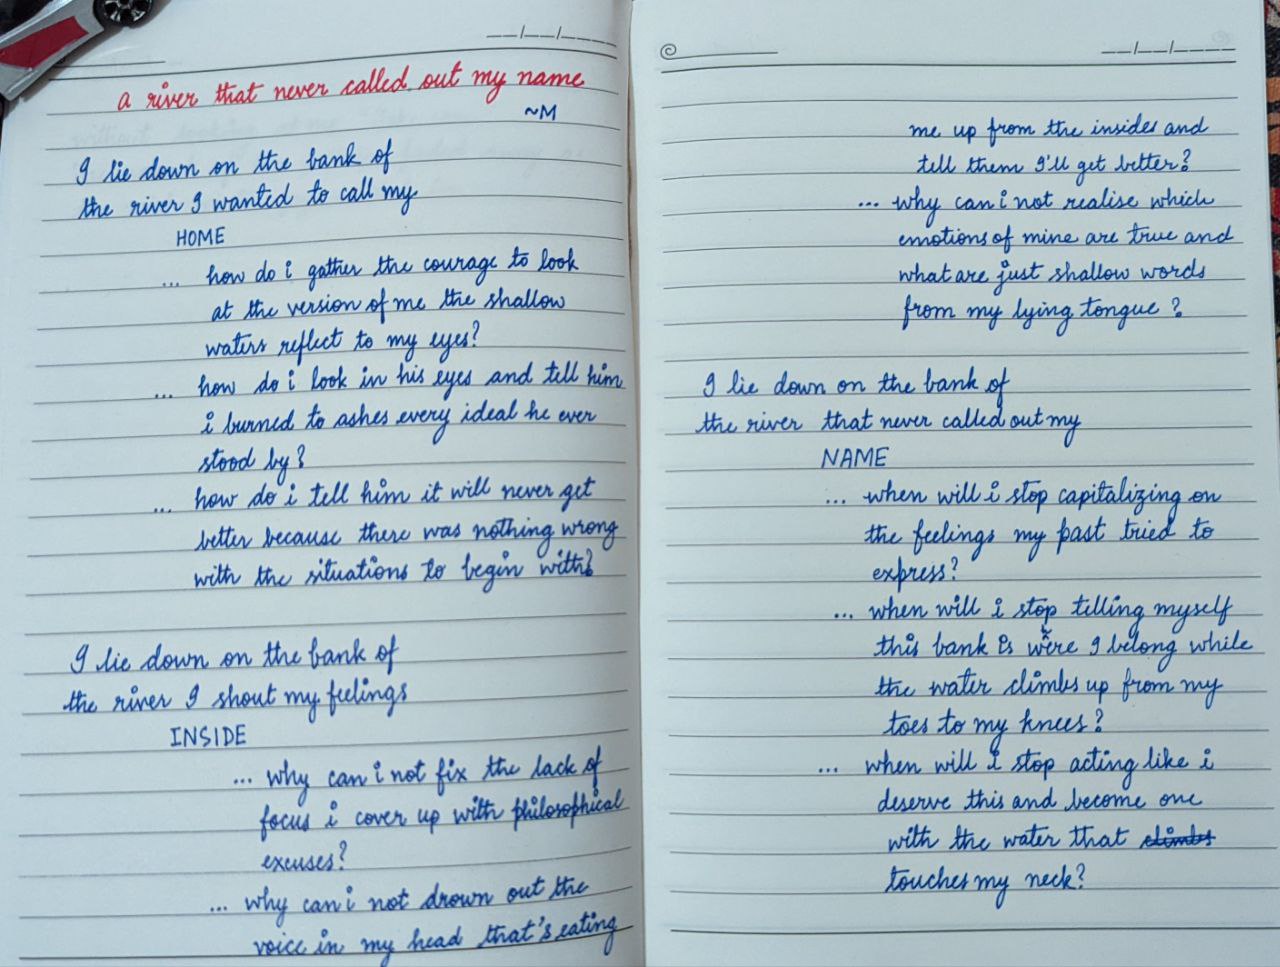 a river that never called out my name
~M
I lie down on the bank of
the river I wanted to call my
HOME
... how do i gather the courage to look
at the version of me the shallow
waters reflect to my eyes?
... how do i look in his eyes and tell him
i burned to ashes every ideal he ever
stood by?
... how do i tell him it will never get
better because there was nothing wrong
with the situations to begin with?
I lie down on the bank of
the river I shout my feelings
INSIDE
... why can i not fix the lack of
focus i cover up with philosophical
excuses?
... why can i not drown out the
voice in my head that's eating
me up from the insides and
tell them I'll get better?
... why can i not realise which
emotions of mine are true and
what are just shallow words
from my lying tongue?
I lie down on the bank of
the river that never called out my
NAME
... when will i stop capitalizing on
the feelings my past tried to
express?
... when will i stop telling myself
this bank is where I belong while
the water climbs up from my
toes to my knees?
... when will i stop acting like i
deserve this and become one
with the water that climbs
touches my neck?